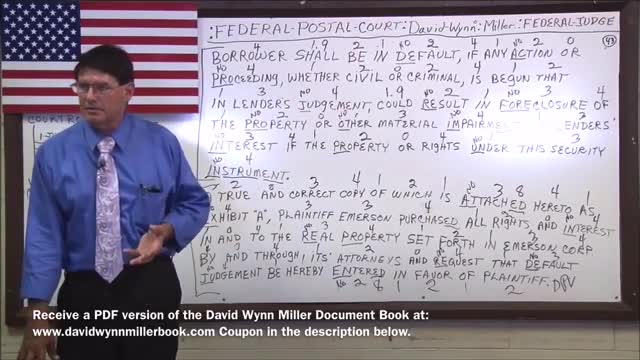 :FEDERAL-POSTAL-COURT: David-Wynn: Miller: FEDERAL-JUDGE
4 1.9 2 1 NO 2 4 1 NO 2 0 (43)
BORROWER SHALL BE IN DEFAULT, IF ANY ACTION OR
NO 4
PROCEEDING, WHETHER CIVIL OR CRIMINAL, IS BEGUN THAT
1 3 NO 4 1.9 NO 2 1 NO 3 4
IN LENDER'S JUDGEMENT, COULD RESULT IN FORECLOSURE OF
THE PROPERTY OR OTHER MATERIAL IMPAIRMENT LENDERS'
INTEREST IF THE PROPERTY OR RIGHTS UNDER THIS SECURITY
NO 4
INSTRUMENT.
2 8 3 4 1 2 1 NO 3 8 4 1
TRUE AND CORRECT COPY OF WHICH IS ATTACHED HERETO AS
EXHIBIT "A", PLAINTIFF EMERSON PURCHASED ALL RIGHTS AND INTEREST
IN AND TO THE REAL PROPERTY SET FORTH IN EMERSON CORP
BY AND THROUGH ITS' ATTORNEYS AND REQUEST THAT DEFAULT
JUDGEMENT BE HEREBY ENTERED IN FAVOR OF PLAINTIFF.
NO 2 8 1 2 1 2
COURT RO
Receive a PDF version of the David Wynn Miller Document Book at:
www.davidwynnmillerbook.com Coupon in the description below.